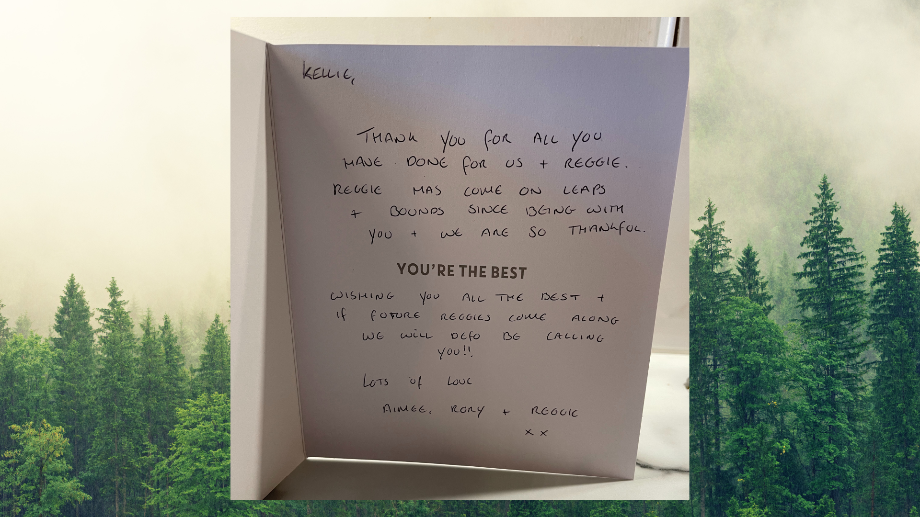 KELLIE,
THANK YOU FOR ALL YOU
HAVE DONE FOR US + REGGIE.
REGGIE HAS COME ON LEAPS
+ BOUNDS SINCE BEING WITH
YOU + WE ARE SO THANKFUL.
YOU'RE THE BEST
WISHING YOU ALL THE BEST +
IF FUTURE REGGIES COME ALONG
WE WILL DEFO BE CALLING
YOU!!
LOTS OF LOVE
AIMEE, RORY + REGGIE
x x